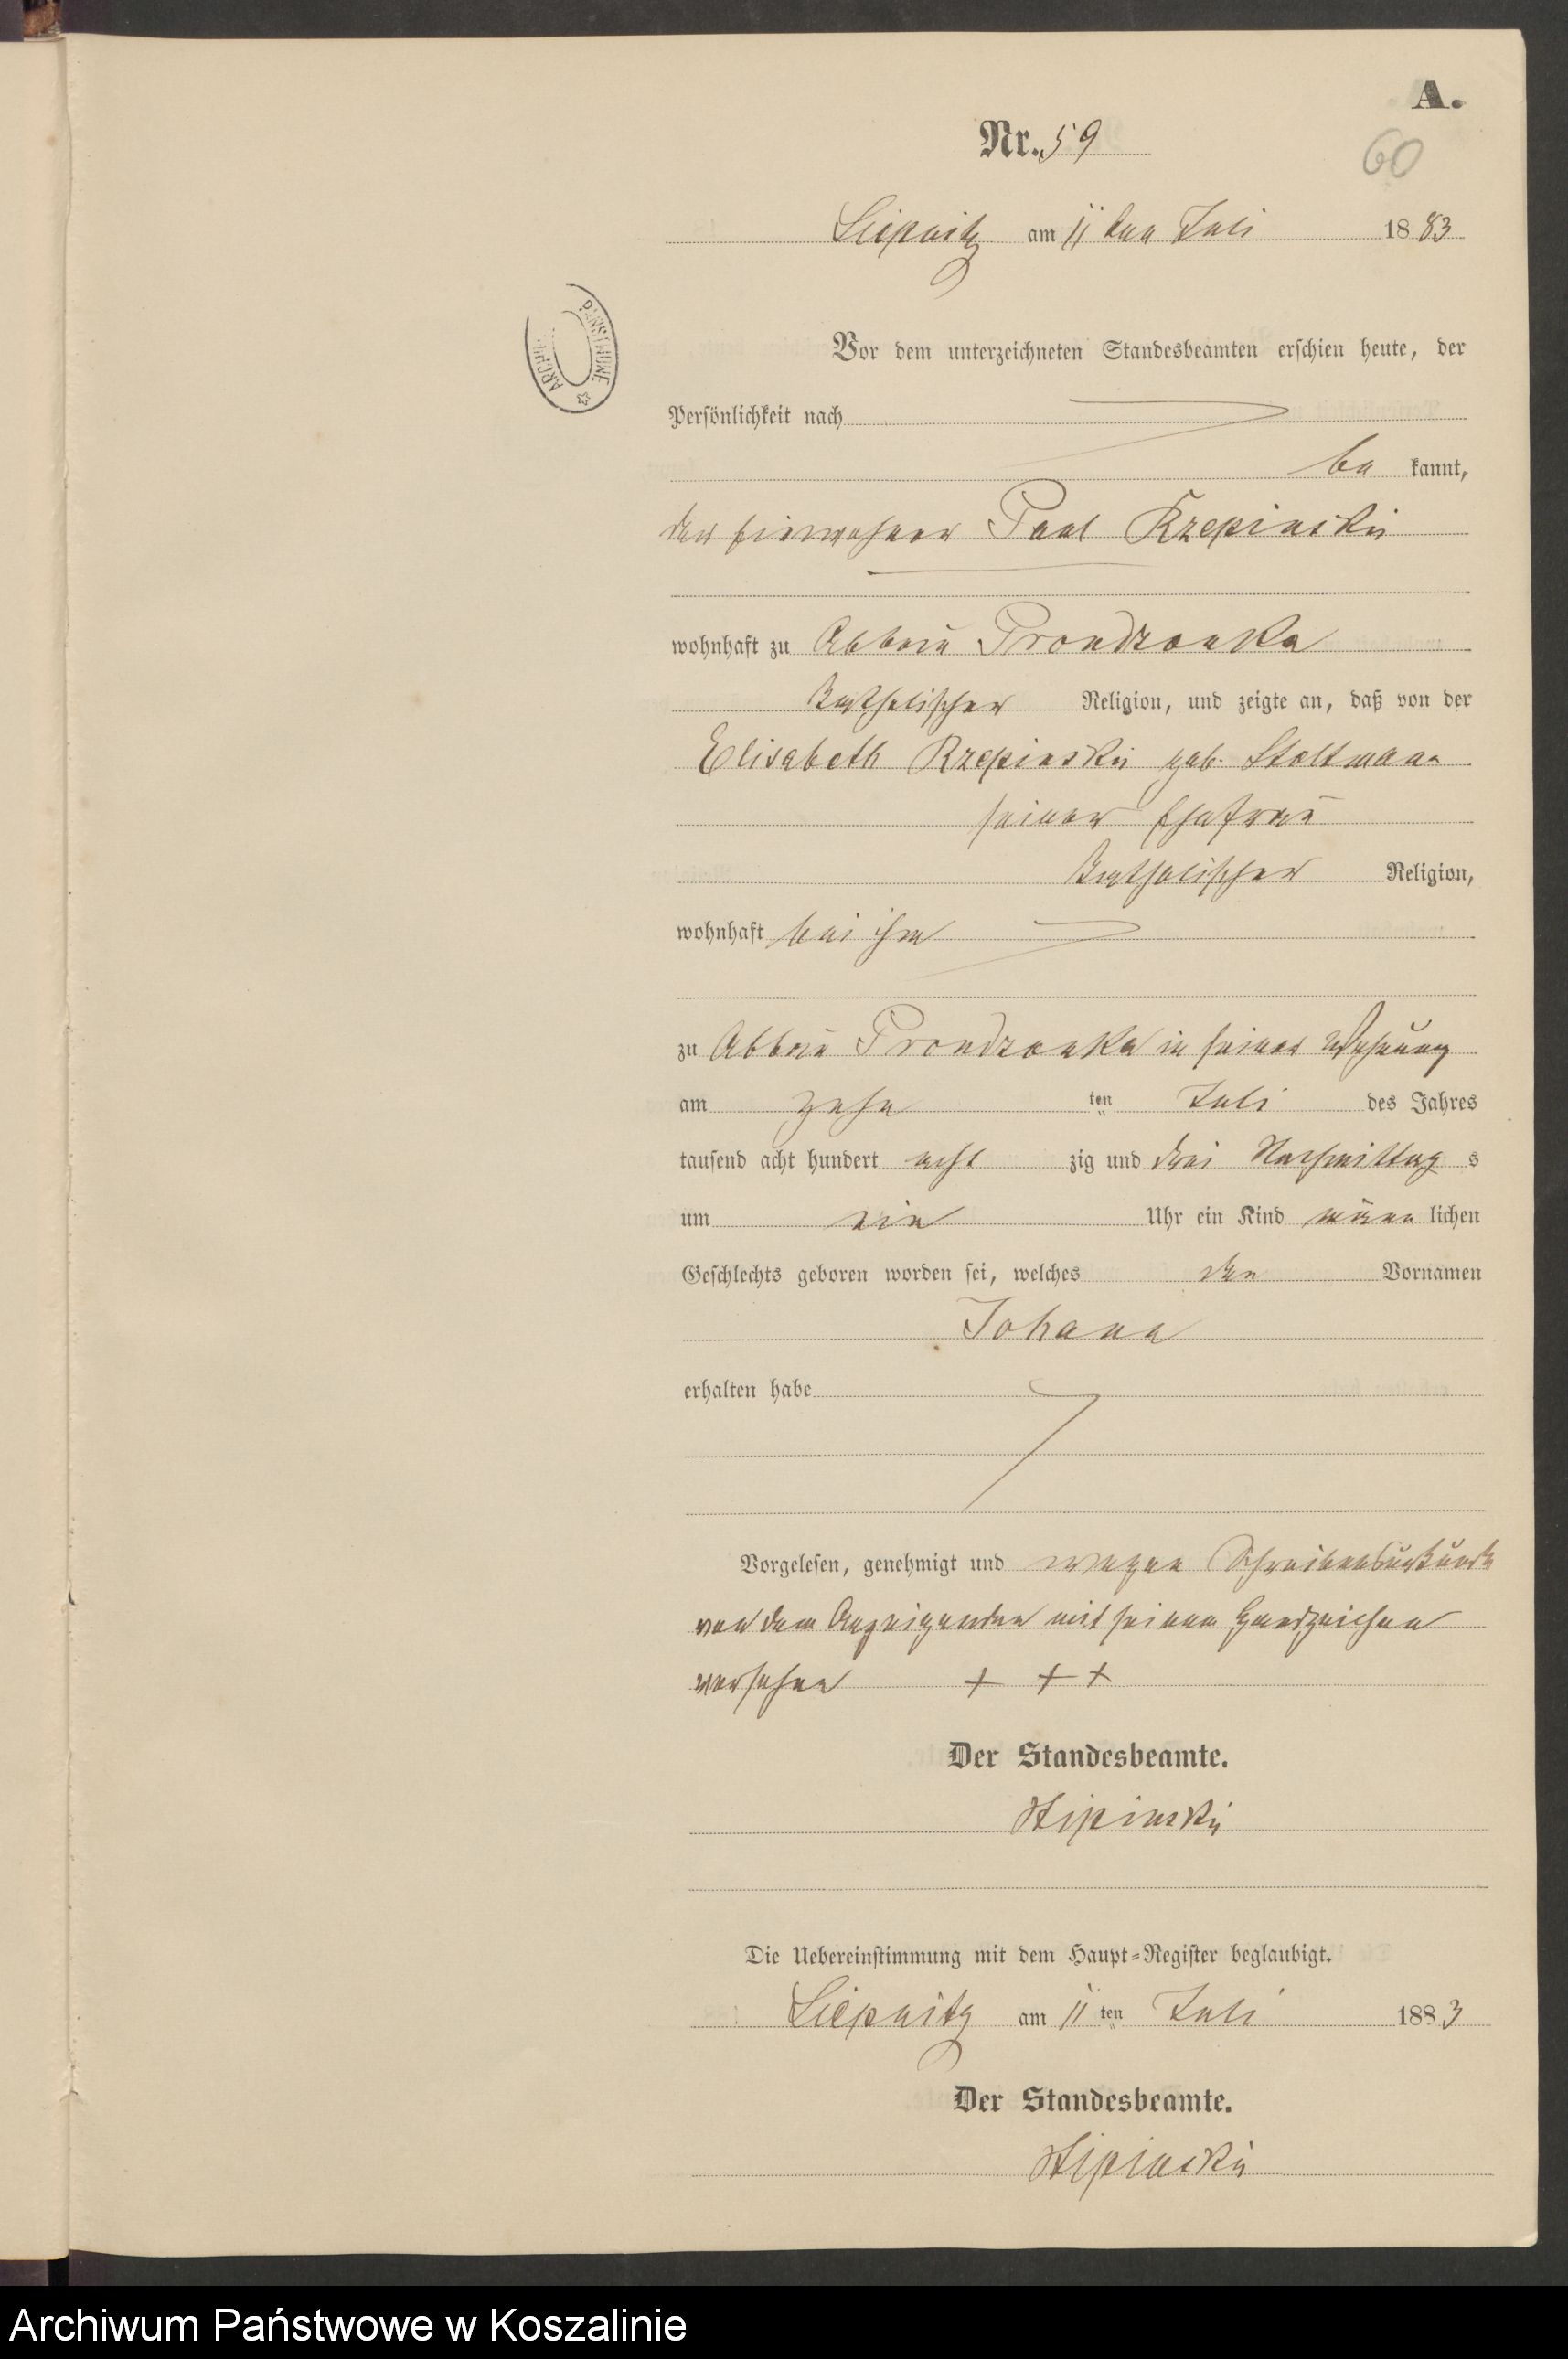 A.
Nr. 59
60
Liepnitz am 11 ten Juli 1883
PAŃSTWOWE
Vor dem unterzeichneten Standesbeamten erschien heute, der
Persönlichkeit nach
be kannt,
der Einwohner Paul Rzepinski
wohnhaft zu Abbau Prondzonka
katholischer Religion, und zeigte an, daß von der
Elisabeth Rzepinski geb. Stoltmann
seiner Ehefrau
katholischer Religion,
wohnhaft bei ihm
zu Abbau Prondzonka in seiner Wohnung
am zehn ten Juli des Jahres
tausend acht hundert acht zig und drei Nachmittag s
um ein Uhr ein Kind männ lichen
Geschlechts geboren worden sei, welches den Vornamen
Johann
erhalten habe
Vorgelesen, genehmigt und wegen Schreibensunkunde
von dem Anzeigenden mit seinem Handzeichen
versehen + + +
Der Standesbeamte.
Die Uebereinstimmung mit dem Haupt-Register beglaubigt.
Liepnitz am 11 ten Juli 1883
Der Standesbeamte.
Archiwum Państwowe w Koszalinie